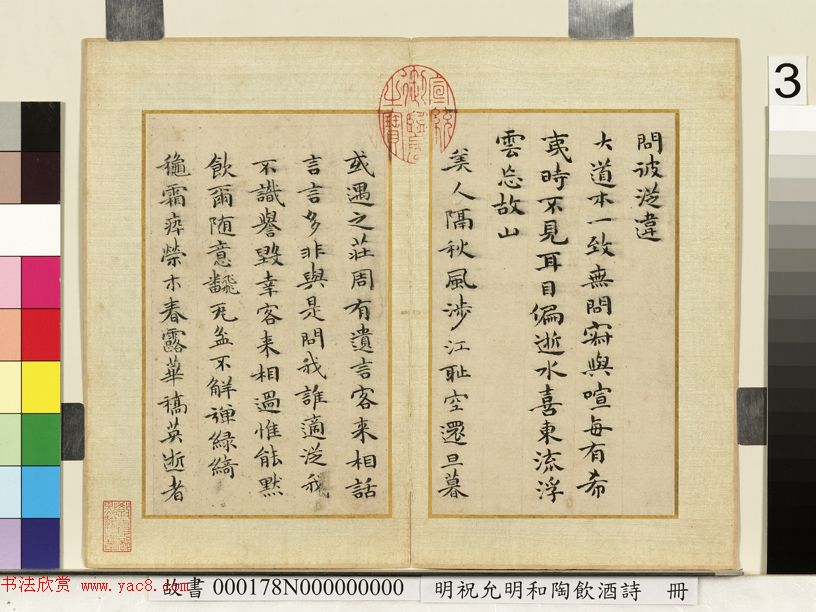 問彼從違
大道本一致無問寂與喧每有希
夷時不見耳目偏逝水喜東流浮
雲忘故山
美人隔秋風涉江耻空還旦暮
或遇之莊周有遺言客來相話
言言多非與是問我誰適從我
不識譽毀幸客來相過惟能默
飲爾随意飜瓦盆不解彈緑綺
穠霜瘁榮木春露華槁英逝者
宣統御覽之寶
3
故書 000178N000000000
明祝允明和陶飲酒詩 冊
书法欣赏 www.yac8.com